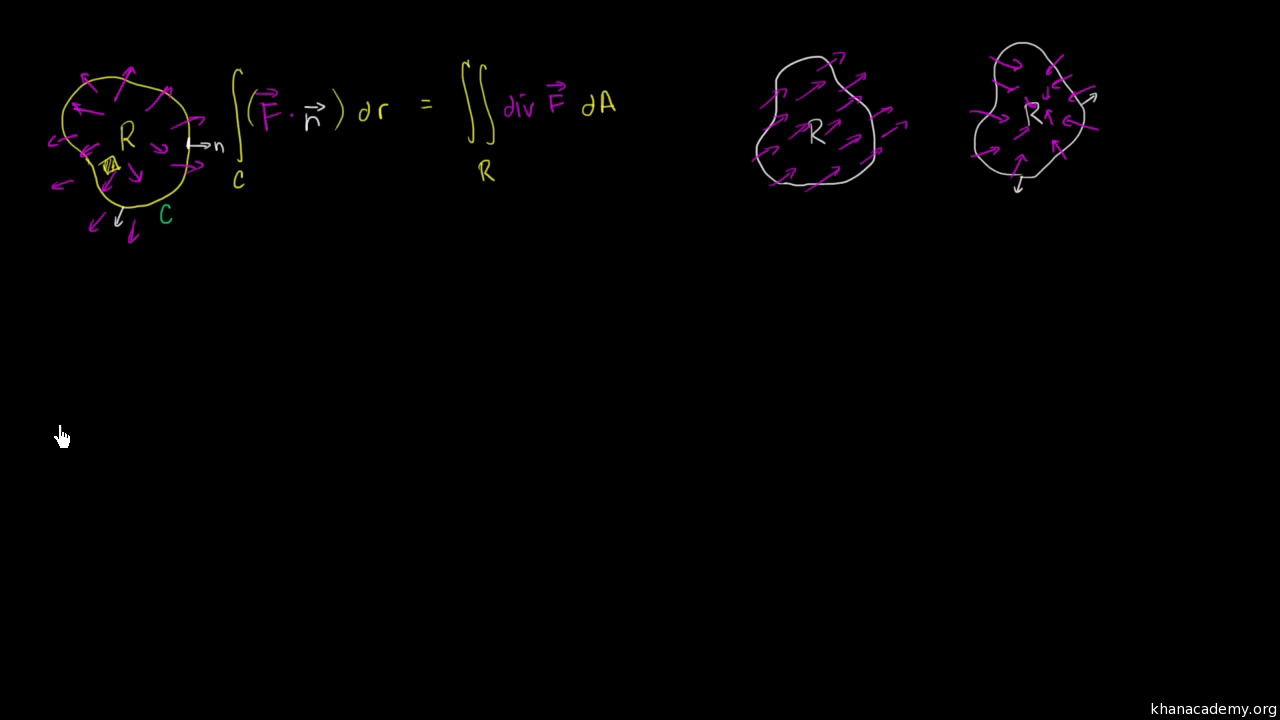 ∫_C (F⃗ · n⃗) dr = ∬_R div F⃗ dA
R
n
C
R
R
khanacademy.org